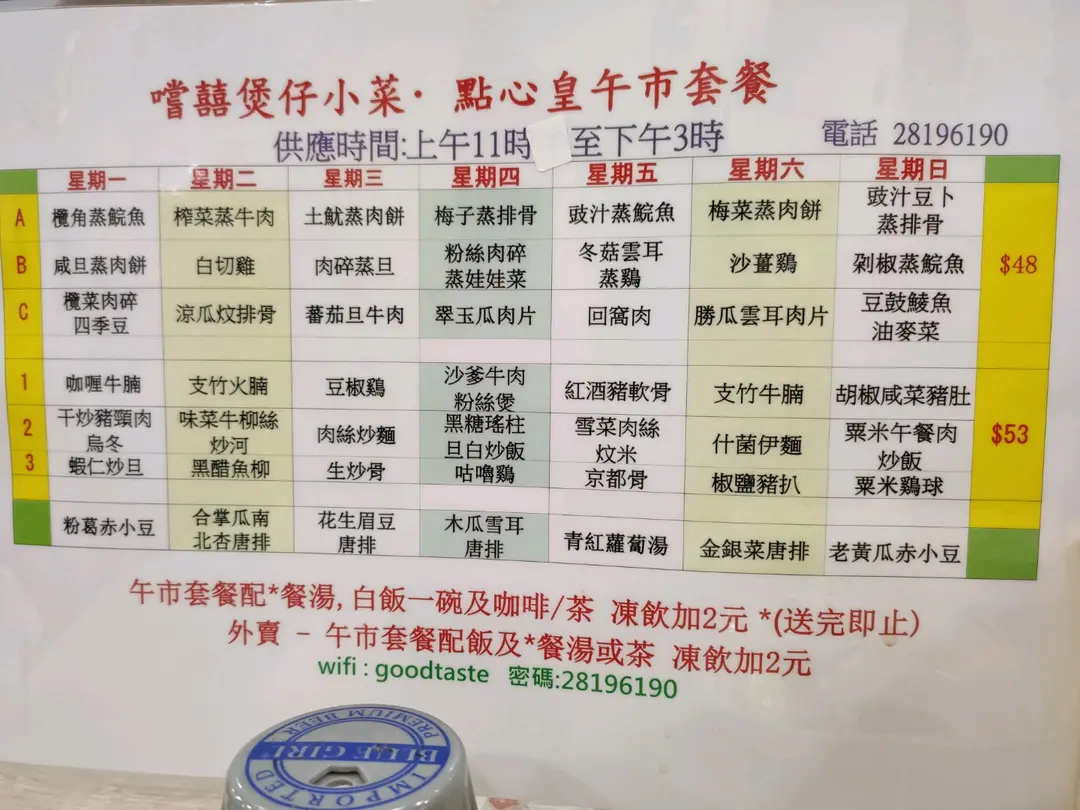 嚐囍煲仔小菜· 點心皇午市套餐
供應時間:上午11時 至下午3時 電話 28196190
星期一 星期二 星期三 星期四 星期五 星期六 星期日
A 欖角蒸鯇魚 榨菜蒸牛肉 土魷蒸肉餅 梅子蒸排骨 豉汁蒸鯇魚 梅菜蒸肉餅 豉汁豆卜
蒸排骨
B 咸旦蒸肉餅 白切雞 肉碎蒸旦 粉絲肉碎
蒸娃娃菜
冬菇雲耳
蒸鷄
沙薑鷄 剁椒蒸鯇魚 $48
C 欖菜肉碎
四季豆
涼瓜炆排骨 蕃茄旦牛肉 翠玉瓜肉片 回窩肉 勝瓜雲耳肉片 豆鼓鯪魚
油麥菜
1 咖喱牛腩 支竹火腩 豆椒鷄 沙爹牛肉
粉絲煲
紅酒豬軟骨 支竹牛腩 胡椒咸菜豬肚
2 干炒豬頸肉
烏冬
味菜牛柳絲
炒河
肉絲炒麵 黑糖瑤柱
旦白炒飯
雪菜肉絲
炆米
什菌伊麵 粟米午餐肉
炒飯
$53
3 蝦仁炒旦 黑醋魚柳 生炒骨 咕嚕鷄 京都骨 椒鹽豬扒 粟米鷄球
粉葛赤小豆 合掌瓜南
北杏唐排
花生眉豆
唐排
木瓜雪耳
唐排
青紅蘿蔔湯 金銀菜唐排 老黃瓜赤小豆
午市套餐配*餐湯,白飯一碗及咖啡/茶 凍飲加2元 *(送完即止)
外賣 - 午市套餐配飯及*餐湯或茶 凍飲加2元
wifi : goodtaste 密碼:28196190
IMPORTED
BLUE GIRL
PREMIUM BEER